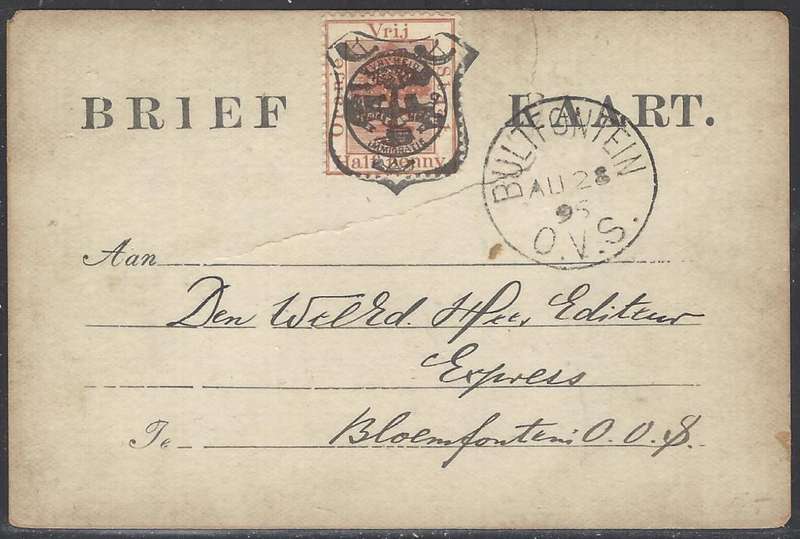 Vrij
Oranje
Half Penny.
VRYHEID
IMMIGRATIE
BRIEF KAART.
BULTFONTEIN
AU 28
95
O.V.S.
Aan
Den WelEd. Heer Editeur
Express
Te
Bloemfontein O.V.S.